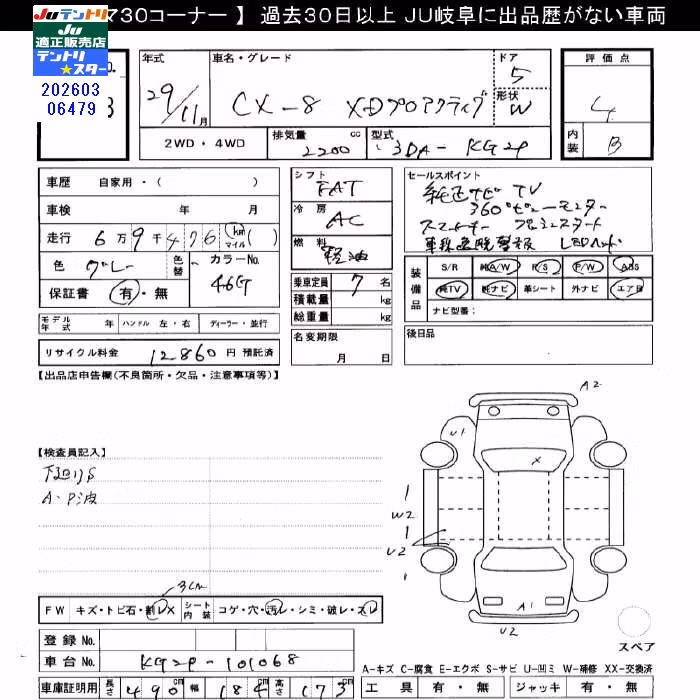 730コーナー 】 過去30日以上 JU岐阜に出品歴がない車両
JUテントリ
JU
適正販売店
テントリ
★スター
202603
06479
年式 車名・グレード ドア 評価点
29/11月 CX-8 XDプロアクティブ 5 形状 W 4
2WD・4WD 排気量 2200 cc 型式 3DA-KG2P 内装 B
車歴 自家用・( )
車検 年 月
走行 6万9千476 km マイル ( )
色 グレー 色替 カラーNo. 46G
保証書 有・無
シフト FAT
冷房 AC
燃料 軽油
乗車定員 7 名
積載量 kg
総重量 kg
名変期限 月 日
セールスポイント
純正ナビ TV
360°ビューモニター
スマートキー プッシュスタート
車線逸脱警報 LEDヘッド
装備品 S/R 純A/W P/S P/W ABS
純TV 純ナビ 革シート 外ナビ エアB
ナビ型番:
後日品
モデル年式 年 ハンドル 左・右 ディーラー・並行
リサイクル料金 12860 円 預託済
【出品店申告欄(不良箇所・欠品・注意事項等)】
【検査員記入】
下廻りS
A・P波
3cm
FW キズ・トビ石・割レX シート内装 コゲ・穴・汚レ・シミ・破レ・スレ
登録 No.
車台 No. KG2P-101068
車庫証明用 長さ 490cm 幅 184cm 高さ 173cm
A2
U1
X
W2
U2
A1
U2
スペア
A-キズ C-腐食 E-エクボ S-サビ U-凹ミ W-補修 XX-交換済
工具 有・無 ジャッキ 有・無